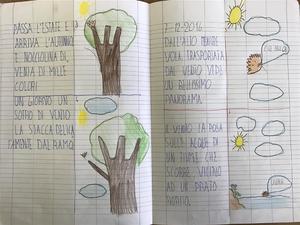 PASSA L'ESTATE E
ARRIVA L'AUTUNNO
E NOCCIOLINA DI,
VENTA DI MILLE
COLORI
UN GIORNO UN
SOFFIO DI VENTO
LA STACCA DELICA
TAMENTE DAL RAMO
7-12-2016
DALL'ALTO MENTRE
VOLA TRASPORTATA
DAL VENTO VEDE
UN BELLISSIMO
PANORAMA.
IL VENTO LA POSA
SULLE ACQUE DI
UN FIUME CHE
SCORRE VICINO
AD UN PRATO